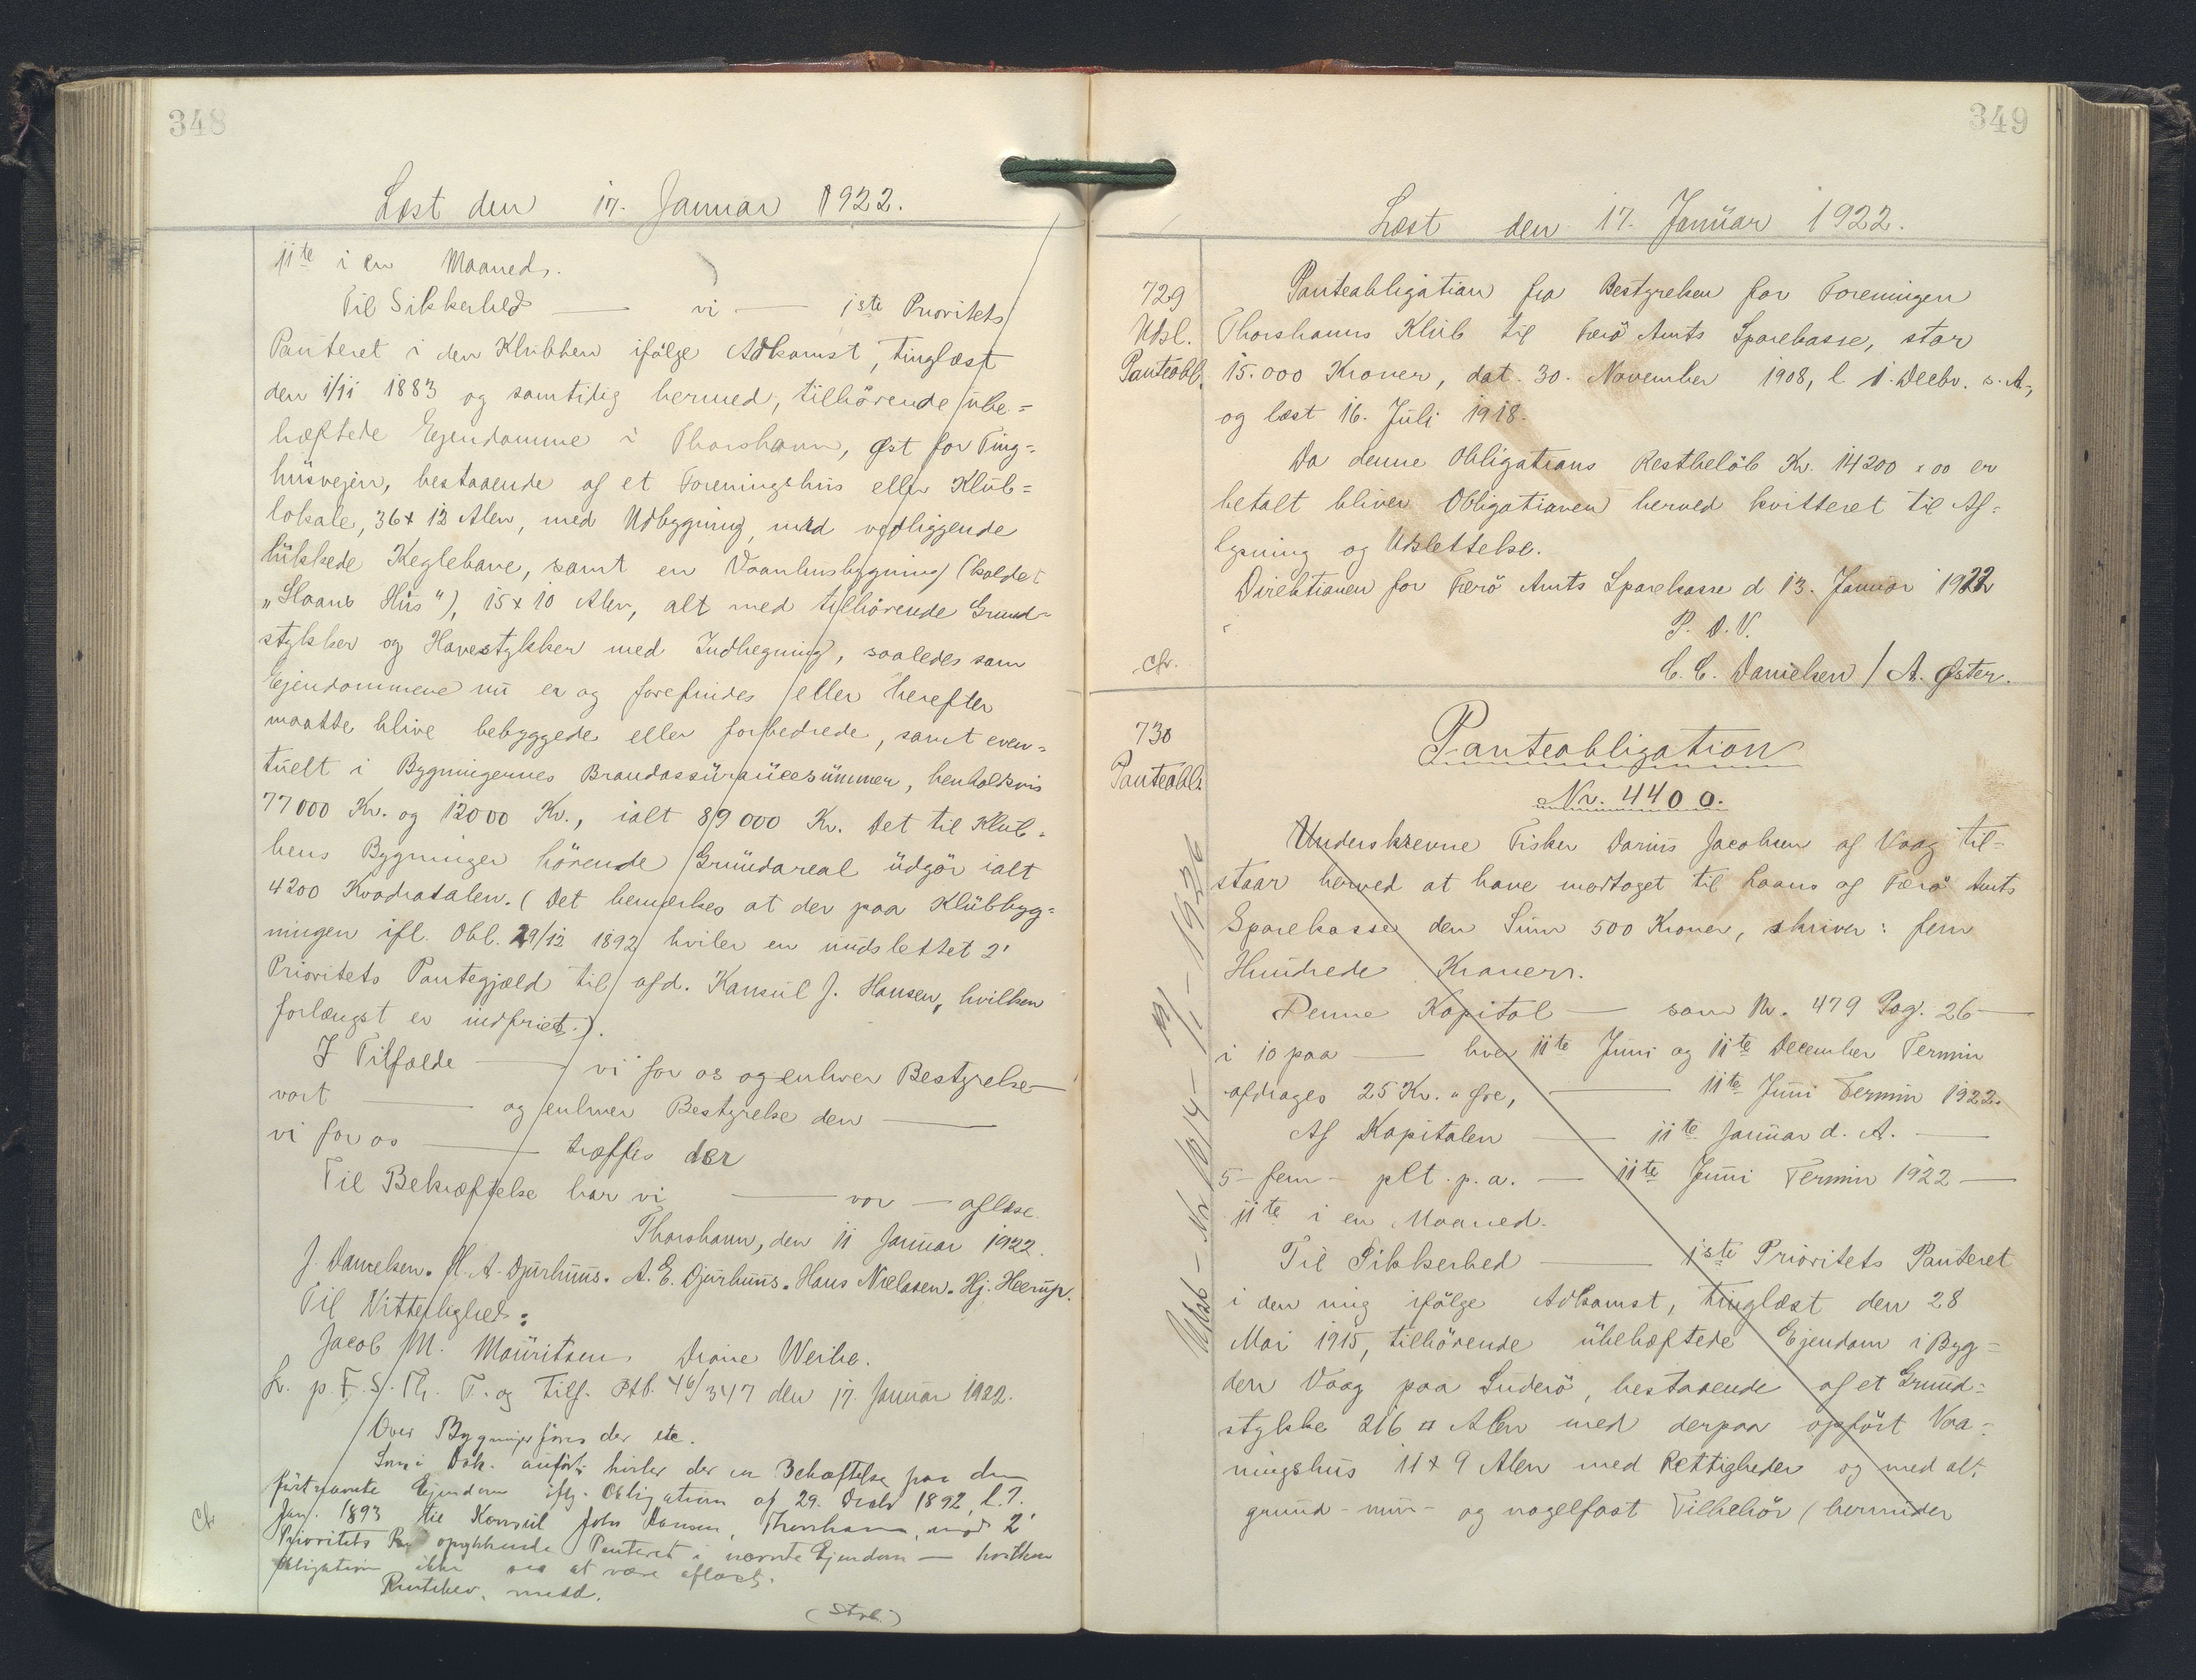 348
Læst den 17. Januar 1922.
11te i en Maaned.
Til Sikkerhed — vi — 1ste Prioritets
Panteret i den Klubben ifölge Adkomst, tinglæst
den 1/11 1883 og samtidig hermed, tilhörende ube=
hæftede Ejendomme i Thorshavn, Øst for Ting=
husvejen, bestaaende af et Foreningshus eller Klub=
lokale, 36 x 12 Alen, med Udbygning, med vedliggende
lukkede Keglebane, samt en Vaanhusbygning (kaldet
"Sloans Hus"), 15 x 10 Alen, alt med tilhörende Grund=
stykker og Havestykker med Indhegning, saaledes som
Ejendommene nu er og forefindes eller herefter
maatte blive bebyggede eller forbedrede, samt even=
tuelt i Bygningernes Brandassurancesummer, henholdsvis
77000 Kr. og 12000 Kr., ialt 89000 Kr. Det til Klub=
bens Bygninger hörende Grundareal udgör ialt
4200 Kvadratalen. (Det bemærkes at der paa Klubbyg=
ningen ifl. Obl. 29/12 1892 hviler en uudslettet 2'
Prioritets Pantegjæld til afd. Konsul J. Hansen, hvilken
forlængst er indfriet.).
I Tilfælde — vi for os og enhver Bestyrelse —
vort — og enhver Bestyrelse den —
vi for os — træffes der
Til Bekræftelse har vi — vor — aflæse.
Thorshavn, den 11 Januar 1922.
J. Danielsen. M. A. Djurhuus. A. E. Djurhuus. Hans Nielsen. Hj. Heerup.
Til Vitterlighed:
Jacob M. Mouritsen. Diane Weihe.
L. p. F. S. Th. T. og Tilf. Ptb. 46/347 den 17. Januar 1922.
Over Bygninger föres der ete.
Som i Dok. anfört, hviler der en Behæftelse paa den
förstnævnte Ejendom iflg. Obligation af 29. Decbr 1892, l. 7.
Jan. 1893 til Konsul John Hansen, Thorshavn, mod 2'
Prioritets oprykkende Panteret i nævnte Ejendom — hvilken
Obligation ikke ses at være aflæst.
Rentebev. medd.
349
Læst den 17. Januar 1922.
729
Udsl.
Panteobl.
Panteobligation fra Bestyrelsen for Foreningen
Thorshavns Klub til Færö Amts Sparekasse, stor
15.000 Kroner, dat. 30. November 1908, l 1. Decbr. s. A.,
og læst 16. Juli 1918.
Da denne Obligations Restbelöb Kr. 14200 x 00 er
betalt bliver Obligationen herved kvitteret til Af=
lysning og Udslettelse.
Direktionen for Færö Amts Sparekasse d 13. Januar 1922
P. D. V.
C. C. Danielsen / A. Øster.
730
Panteobl.
Panteobligation
Nr. 4400.
Underskrevne Fisker Darius Jacobsen af Vaag til=
staar herved at have modtaget til Laans af Færö Amts
Sparekasse den Sum 500 Kroner, skriver: fem
Hundrede Kroner.
Denne Kapital — som Nr. 479 Pag. 26 —
i 10 paa — hver 11te Juni og 11te December Termin
afdrages 25 Kr. " Øre, — 11te Juni Termin 1922.
Af Kapitalen — 11te Januar d. A. —
5 - fem - pCt. p. a. — 11te Juni Termin 1922 —
11te i en Maaned.
Til Sikkerhed — 1ste Prioritets Panteret
i den mig ifölge Adkomst, tinglæst den 28
Mai 1915, tilhörende übehæftede Ejendom i Byg=
den Vaag paa Suderö, bestaaende af et Grund=
stykke 216 □ Alen med derpaa opfört Vaa=
ningshus 11 x 9 Alen med Rettigheder og med alt
grund - mur - og nagelfast Tilbehör (herunder